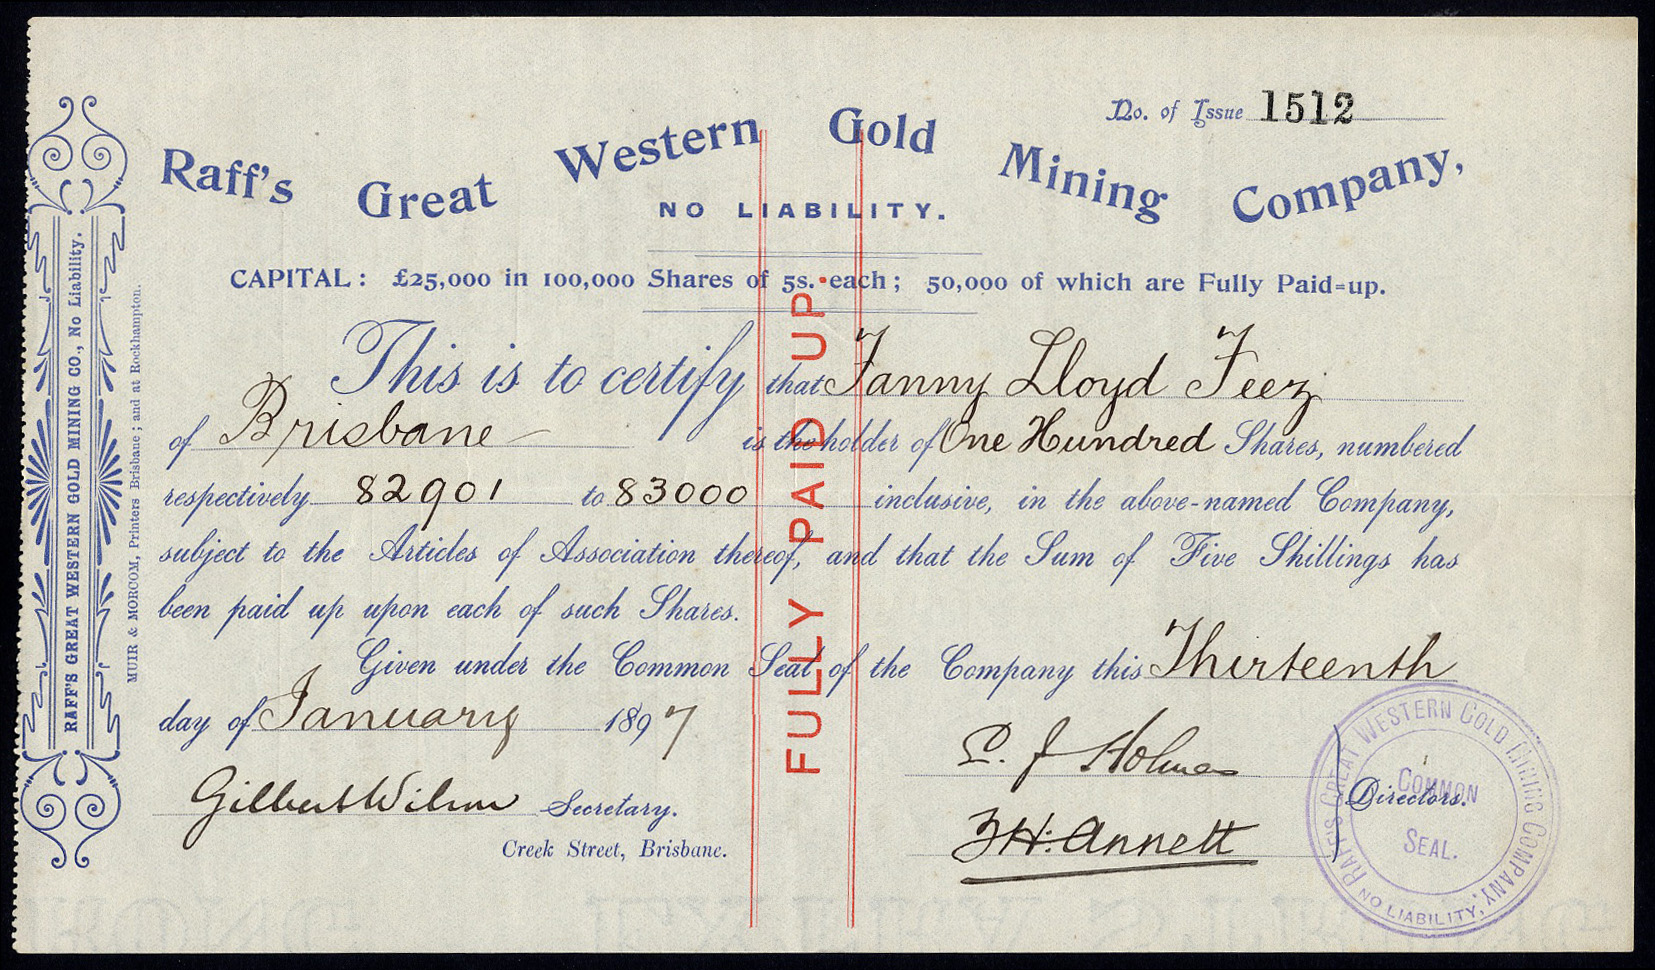 No. of Issue 1512
Raff's Great Western Gold Mining Company,
NO LIABILITY.
CAPITAL: £25,000 in 100,000 Shares of 5s. each; 50,000 of which are Fully Paid=up.
This is to certify that Fanny Lloyd Feez
of Brisbane is the holder of One Hundred Shares, numbered
respectively 82901 to 83000 inclusive, in the above-named Company,
subject to the Articles of Association thereof, and that the Sum of Five Shillings has
been paid up upon each of such Shares.
Given under the Common Seal of the Company this Thirteenth
day of January 1897
Gilbert Wilson Secretary.
Creek Street, Brisbane.
J Holmes
H. Annett
Directors.
FULLY PAID UP.
RAFF'S GREAT WESTERN GOLD MINING COMPANY,
NO LIABILITY,
COMMON
SEAL.
RAFF'S GREAT WESTERN GOLD MINING CO., No Liability.
MUIR & MORCOM, Printers Brisbane; and at Rockhampton.